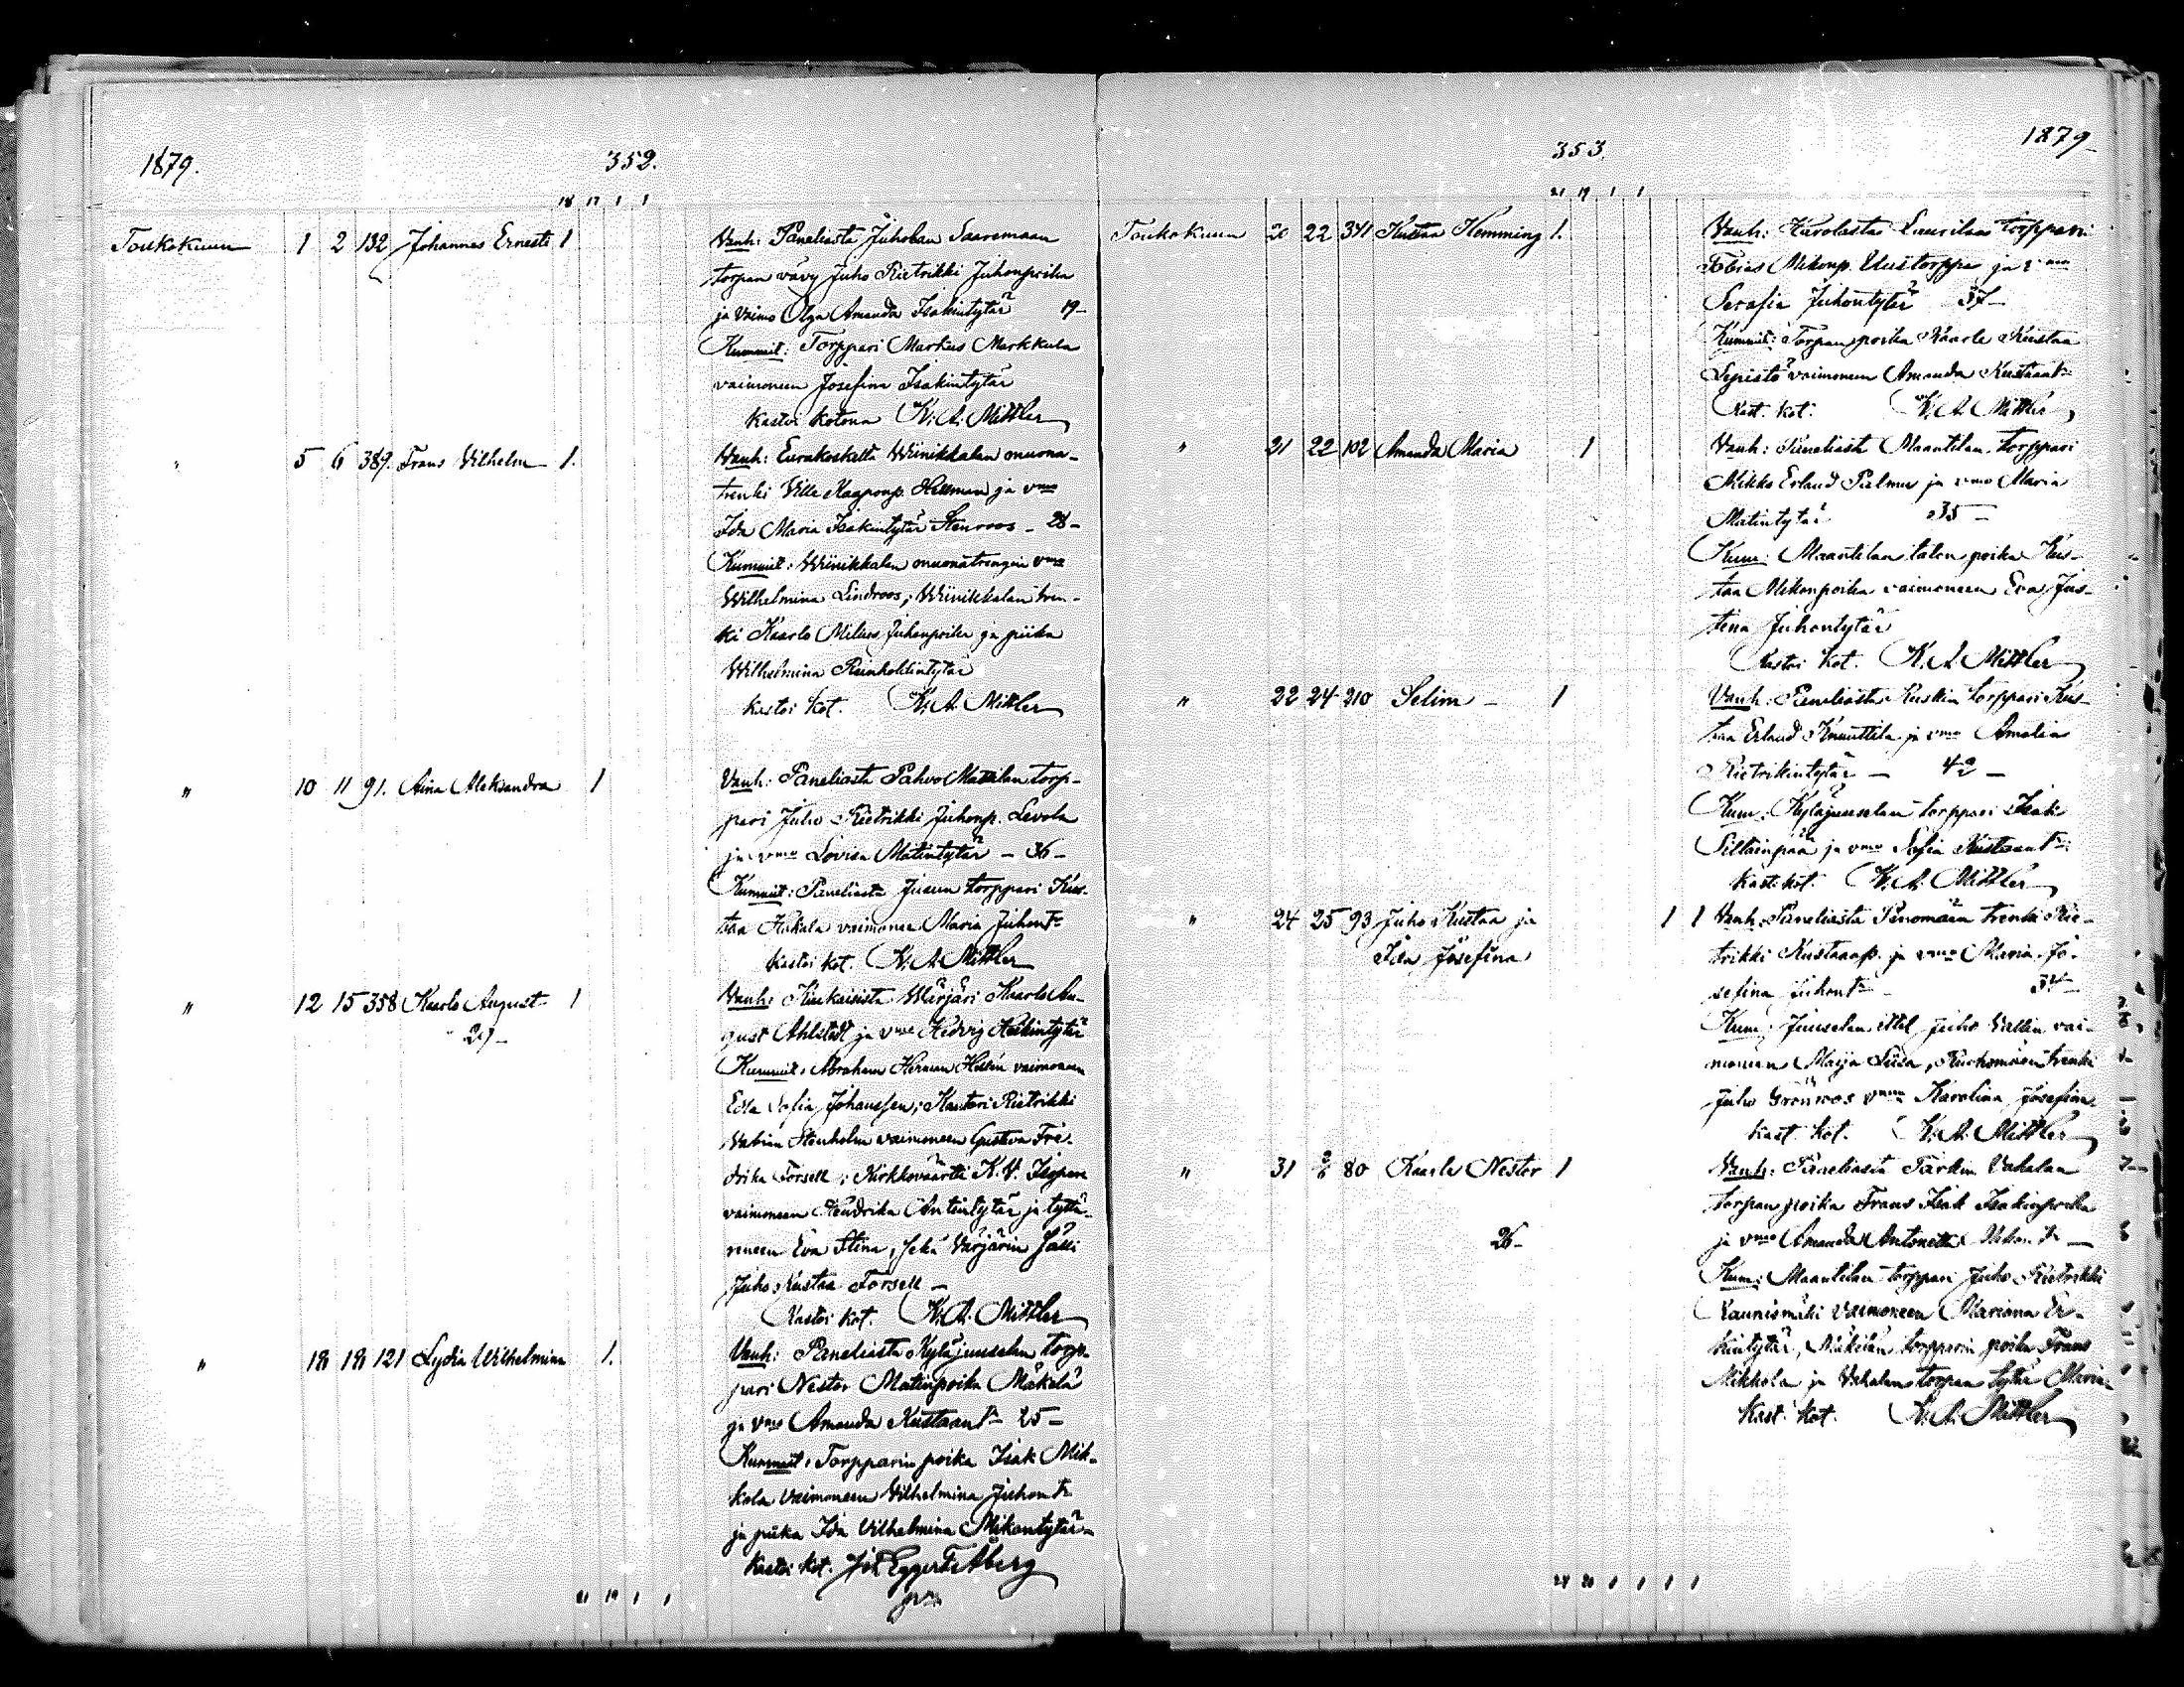 1879.
352.
18 17 1 1
Toukokuun 1 2 132 Johannes Ernesti 1
Vanh: Paneliasta Juholan Saaremaan
torpan vävy Juho Rietrikki Juhonpoika
ja vaimo Olga Amanda Isakintytär 19-
Kummit: Torppari Markus Markkula
vaimoneen Josefina Isakintytär
Kastoi kotona K. A. Mittler
" 5 6 389. Frans Vilhelm 1.
Vanh: Eurakoskelta Wiinikkalan muona-
trenki Ville Kaaponp. Hellman ja vmo
Ida Maria Isakintytär Stenroos - 28-
Kummit: Wiinikkalan muonatrengin vmo
Wilhelmina Lindroos; Wiinikkalan tren-
ki Kaarlo Milius Juhonpoika ja piika
Wilhelmina Reinholdintytär
Kastoi kot. K. A. Mittler
" 10 11 91. Aina Aleksandra 1
Vanh: Paneliasta Pahvo Mattilan torp-
pari Juho Rietrikki Juhonp. Levola
ja vmo Lovisa Matintytär - 36-
Kummit: Paneliasta Jusun torppari Kus-
taa Hakala vaimonee Maria Juhont.
Kastoi kot. K. A. Mittler
" 12 15 358 Kaarlo August 1
29-
Vanh: Kiukaisista Wärjäri Kaarlo Au-
gust Ahlstedt ja vmo Hedvig Heikintytär
Kummit: Abraham Herman Hellén vaimoneen
Edla Sofia Johanssen; Kanttori Rietrikki
Vabian Stenholm vaimoneen Gustava Fre-
drika Forsell; Kirkkoväärtti K. V. Isopere
vaimoneen Hendrika Antintytär ja tyttä-
reneen Eva Stina, sekä Värjärin Sälli
Juho Kustaa Forsell -
Kastoi kot. K. A. Mittler
" 18 18 121 Lydia Wilhelmina 1.
Vanh: Paneliasta Kyläjuuselan torp-
pari Nestor Matinpoika Mäkelä
ja vmo Amanda Kustaant. - 25-
Kummit: Torpparin poika Isak Mik-
kola vaimoneen Vilhelmina Juhont.
ja piika Ida Vilhelmina Mikontytär-
Kastoi kot. Joh Eggert Åberg
21 19 1 1
353.
1879
21 19 1 1
Toukokuun 20 22 341 Kustaa Hemming 1.
Vanh: Harolasta Laurilan torppari
Tobias Mikonp. Uusitorppa ja vmo
Serafia Juhontytär 37-
Kummit: Torpan poika Kaarle Kustaa
Lepistö vaimoneen Amanda Kustaant.
Kast. kot. K. A. Mittler
" 21 22 102 Amanda Maria 1
Vanh: Paneliasta Maantilan torppari
Mikko Erland Palmu ja vmo Maria
Matintytär 35-
Kum: Maantilan talon poika Kus-
taa Mikonpoika vaimoneen Eva Jus-
tina Juhontytär
Kastoi kot. K. A. Mittler
" 22 24 210 Selim - 1
Vanh: Paneliasta Ruskin torppari Kus-
taa Erland Knuuttila ja vmo Amalia
Rietrikintytär - 42-
Kum: Kyläjuuselan torppari Isak
Siltainpää ja vmo Sofia Kustaant.
Kast. kot. K. A. Mittler
" 24 25 93 Juho Kustaa ja 1 1
Ida Josefina
Vanh: Paneliasta Penomään trenki Rie-
trikki Kustaanp. ja vmo Maria Jo-
sefina Juhont. 34-
Kum: Juuselan ittel. Juho Vallin vai-
moneen Maija Liisa, trenki
Juho Grönroos vmneen Karolina Josefina
Kast. kot. K. A. Mittler
" 31 2/6 80 Kaarle Nestor 1
26-
Vanh: Paneliasta Tarkin Vahalan
torpan poika Frans Isak Isakinpoika
ja vmo Amanda Antonetta -
Kum: Maantilan torppari Juho Rietrikki
Kaunismäki vaimoneen Mariana Er-
kintytär, Mäkelän torpparin poika Frans
Mikkola ja Vahalan torpan tytär Maria
Kast. kot. K. A. Mittler
24 20 1 1 1 1